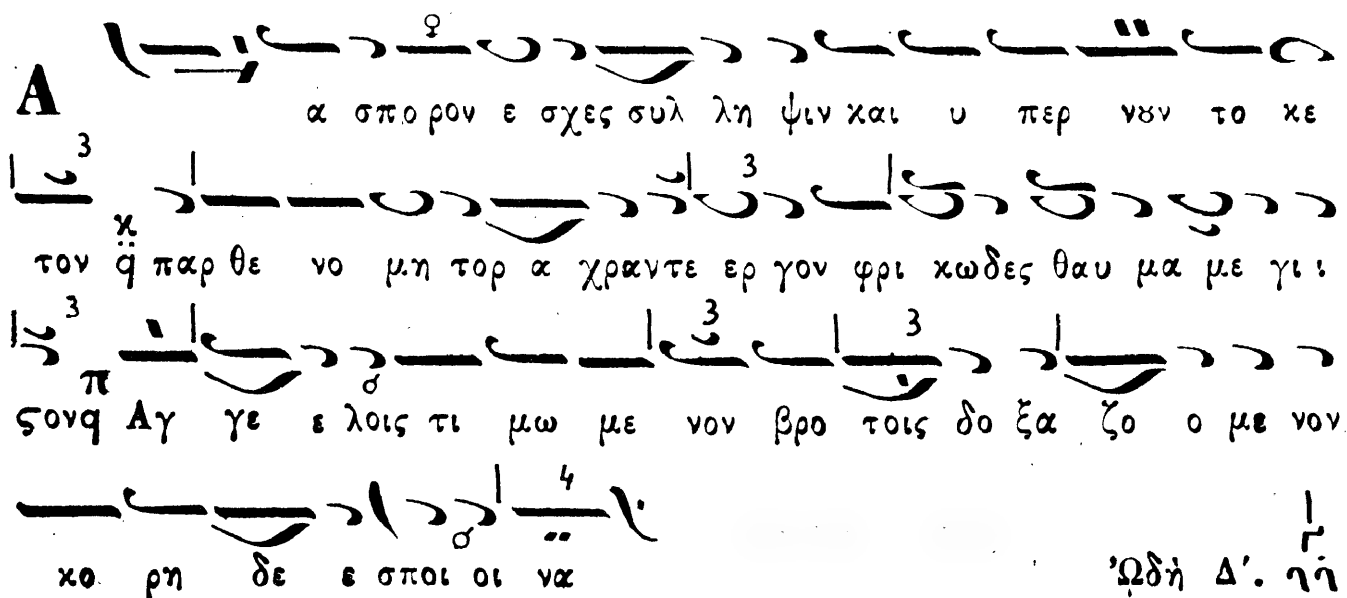 Α α σπο ρον ε σχες συλ λη ψιν και υ περ νȣν το κε
τον παρ θε νο μη τορ α χραντε ερ γον φρι κωδες θαυ μα με γι ι
ϛον Αγ γε ε λοις τι μω με νον βρο τοις δο ξα ζο ο με νον
κο ρη δε ε σποι οι να
Ὠδὴ Δ΄.